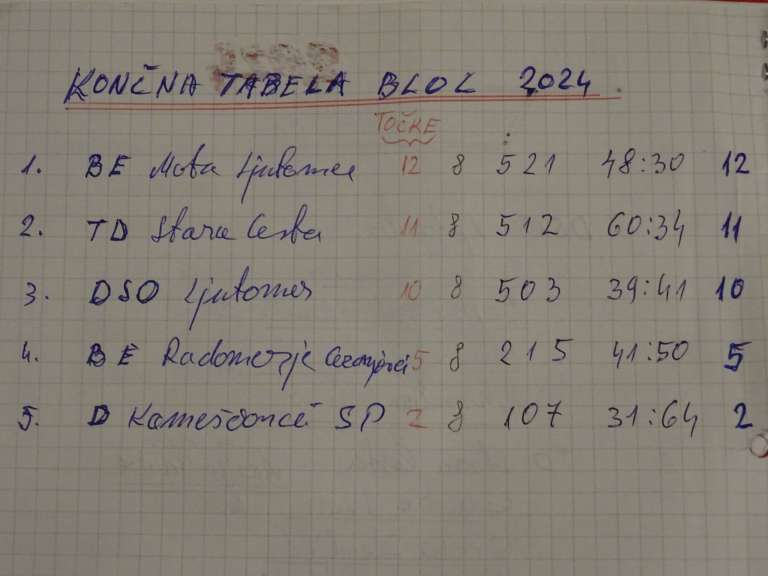 KONČNA TABELA BLOC 2024
TOČKE
1. BE Mota Ljutomer 12 8 521 48:30 12
2. TD Stara Cesta 11 8 512 60:34 11
3. DSO Ljutomer 10 8 503 39:41 10
4. BE Radomerje 5 8 215 41:50 5
5. D SP 2 8 107 31:64 2